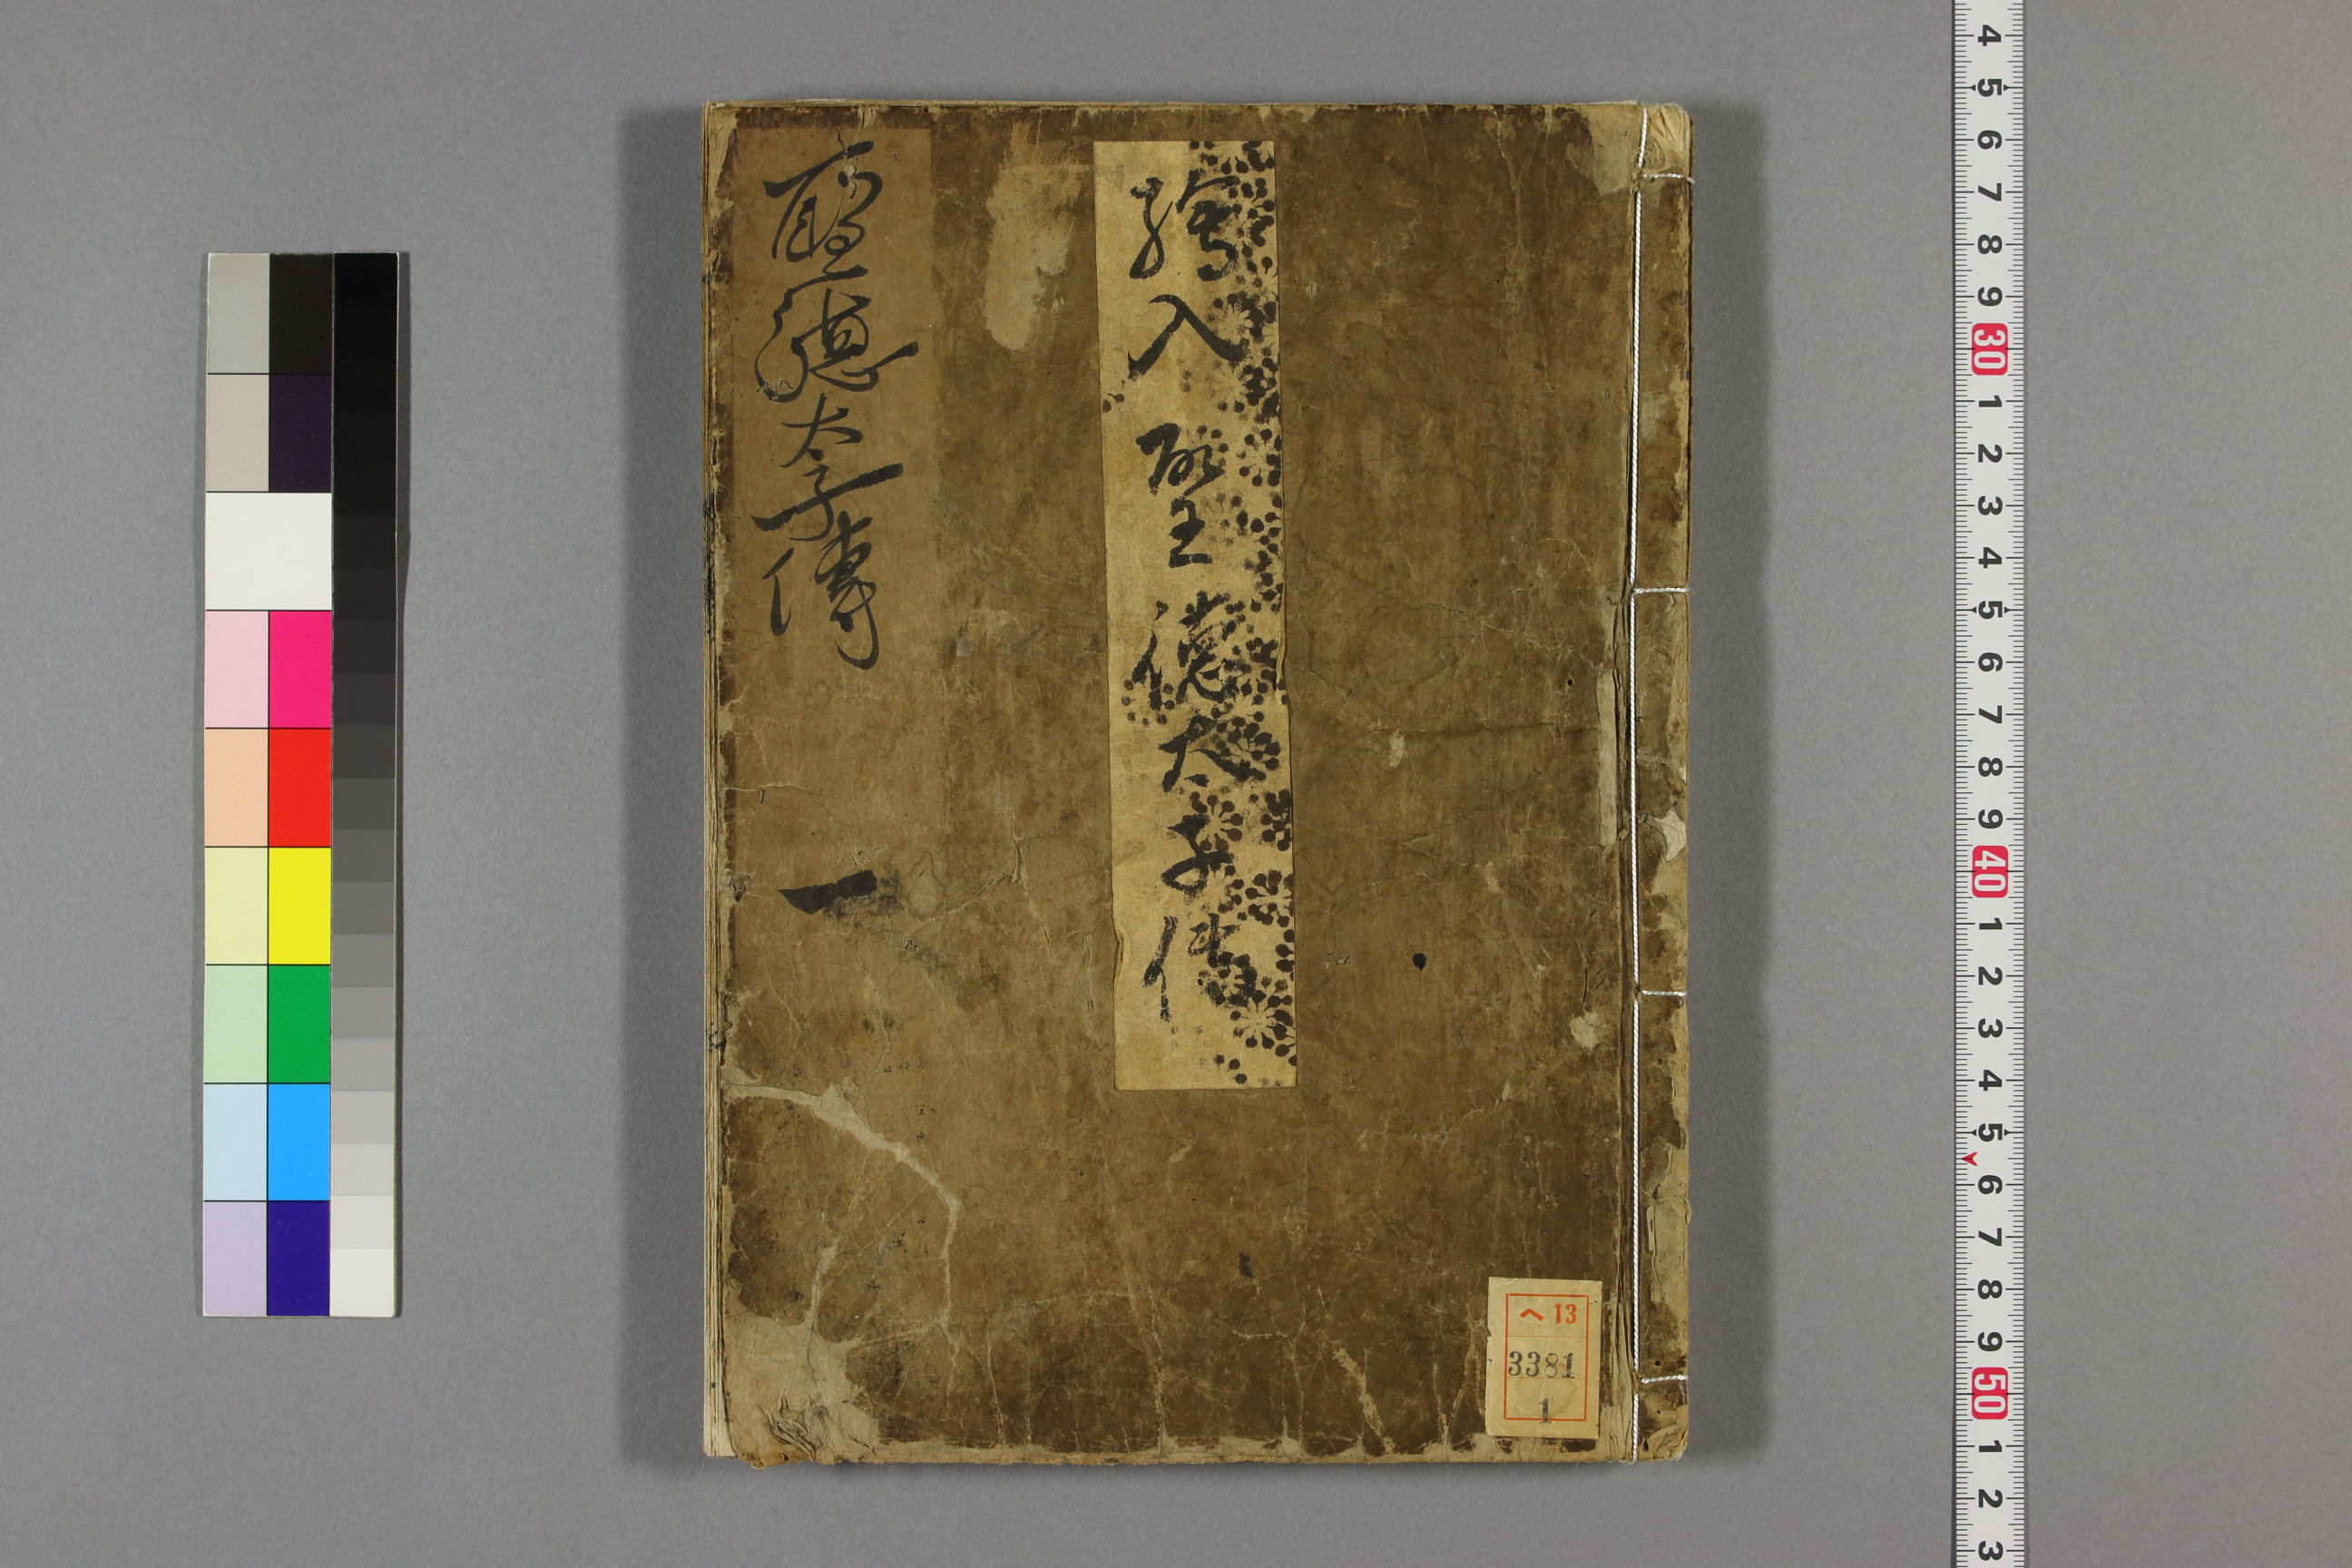 繪入聖徳太子傳
聖徳太子傳
一
ヘ13
3381
1
4
5
6
7
8
9
30
1
2
3
4
5
6
7
8
9
40
1
2
3
4
5
6
7
8
9
50
1
2
3